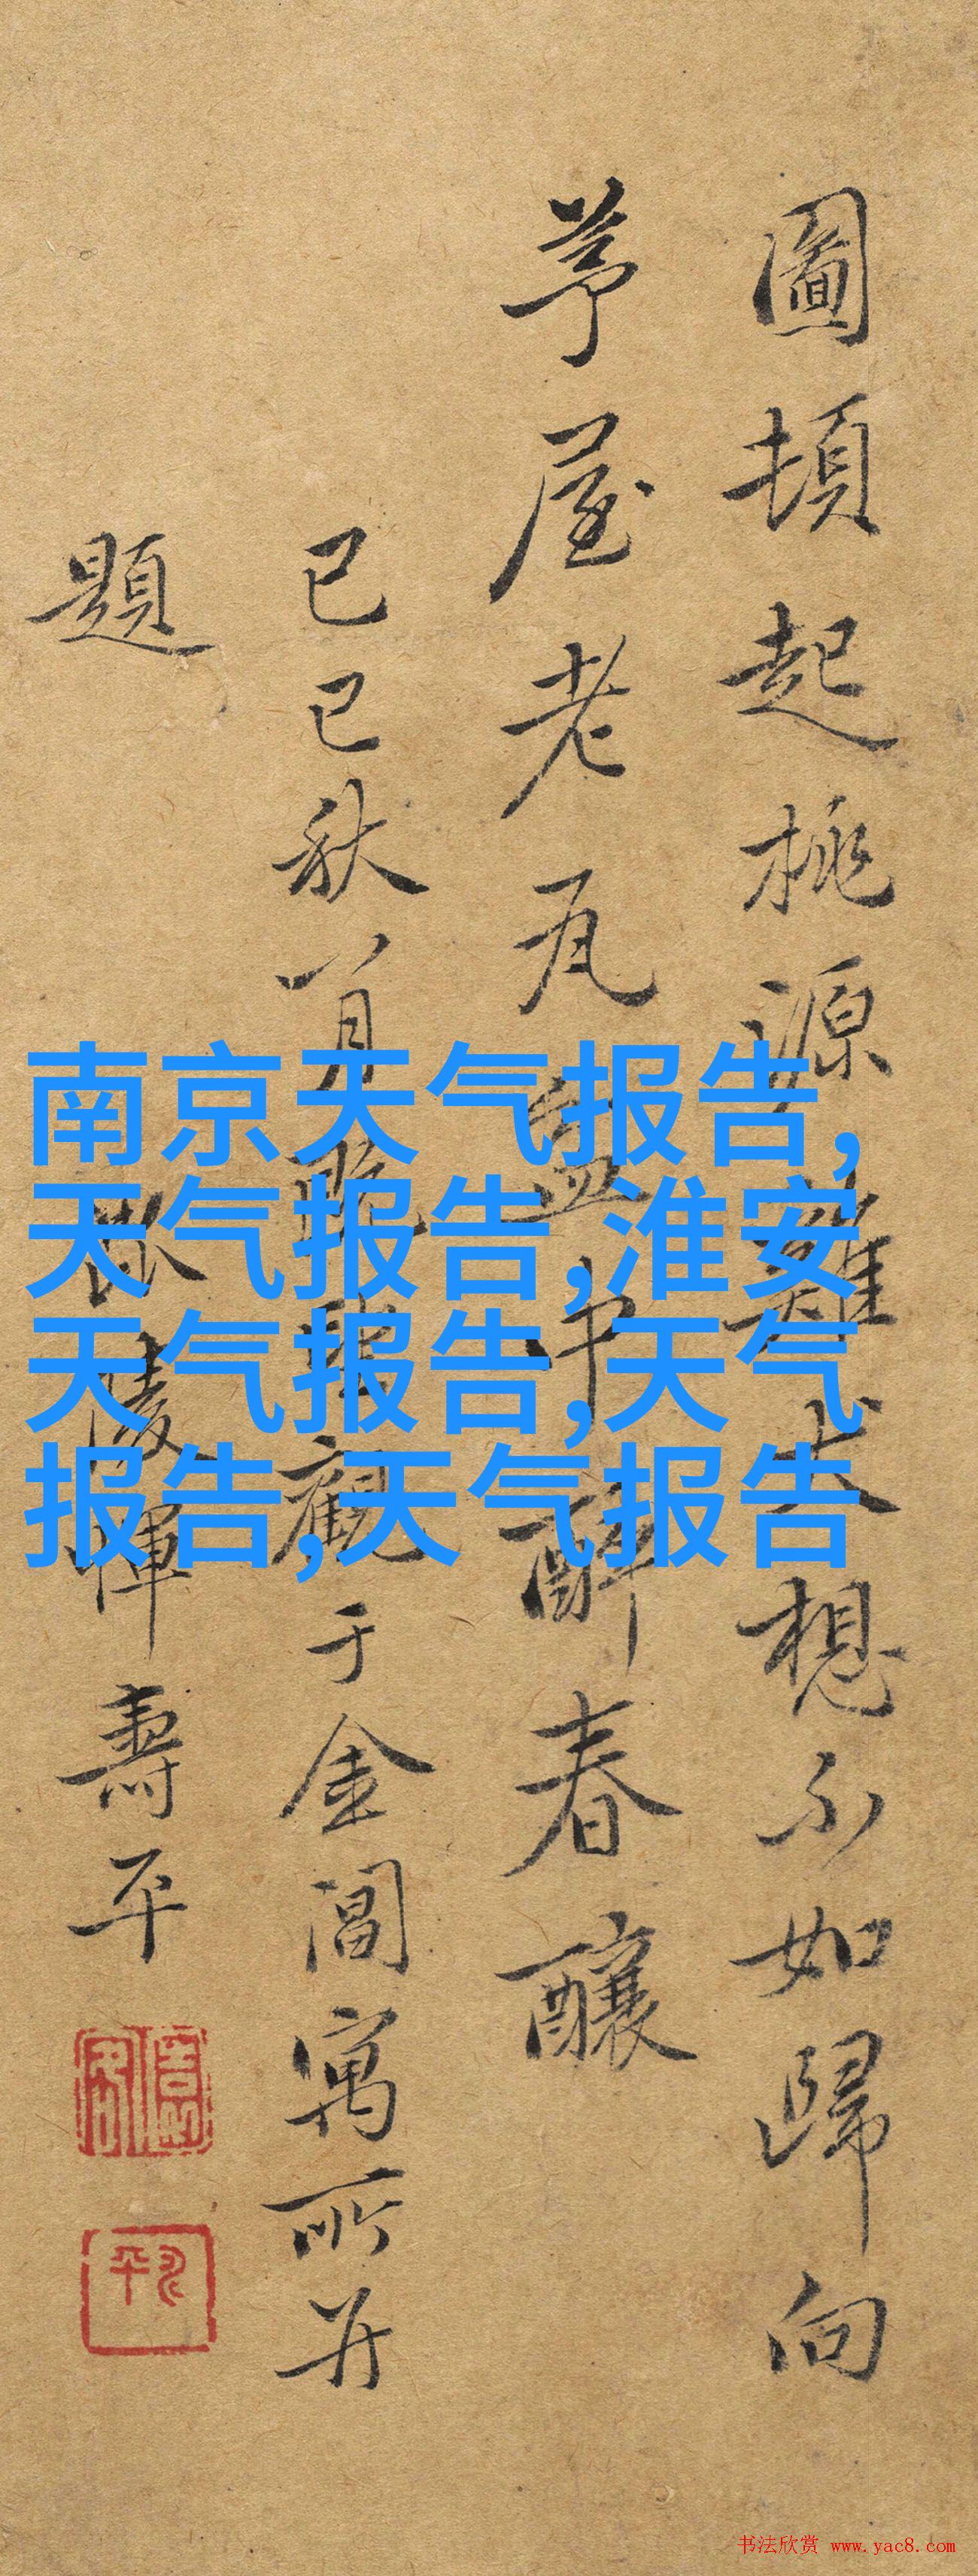 圖頓起桃源雞犬想不如歸向
茅屋老瓦盆中醉春釀
己巳秋八月觀于金閶寓所并
題
惲壽平
南京天气报告,
天气报告,淮安
天气报告,天气
报告,天气报告
书法欣赏 www.yac8.com